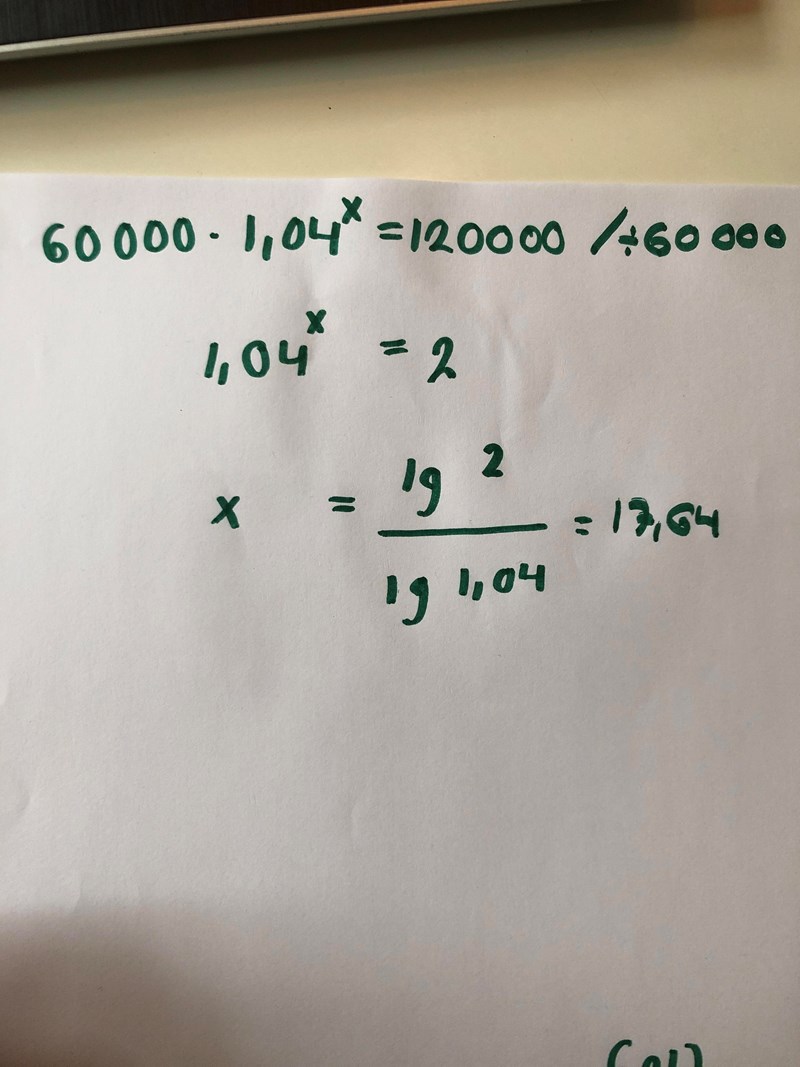 60 000 · 1,04^x = 120000 /÷60 000
1,04^x = 2
x = lg 2 / lg 1,04 = 17,64